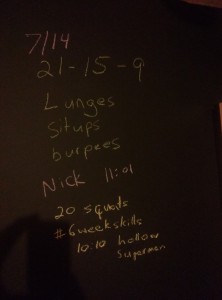 7/14
21-15-9
Lunges
Situps
burpees
Nick 11:01
20 squats
#6weekskills
10:10 hollow
superman